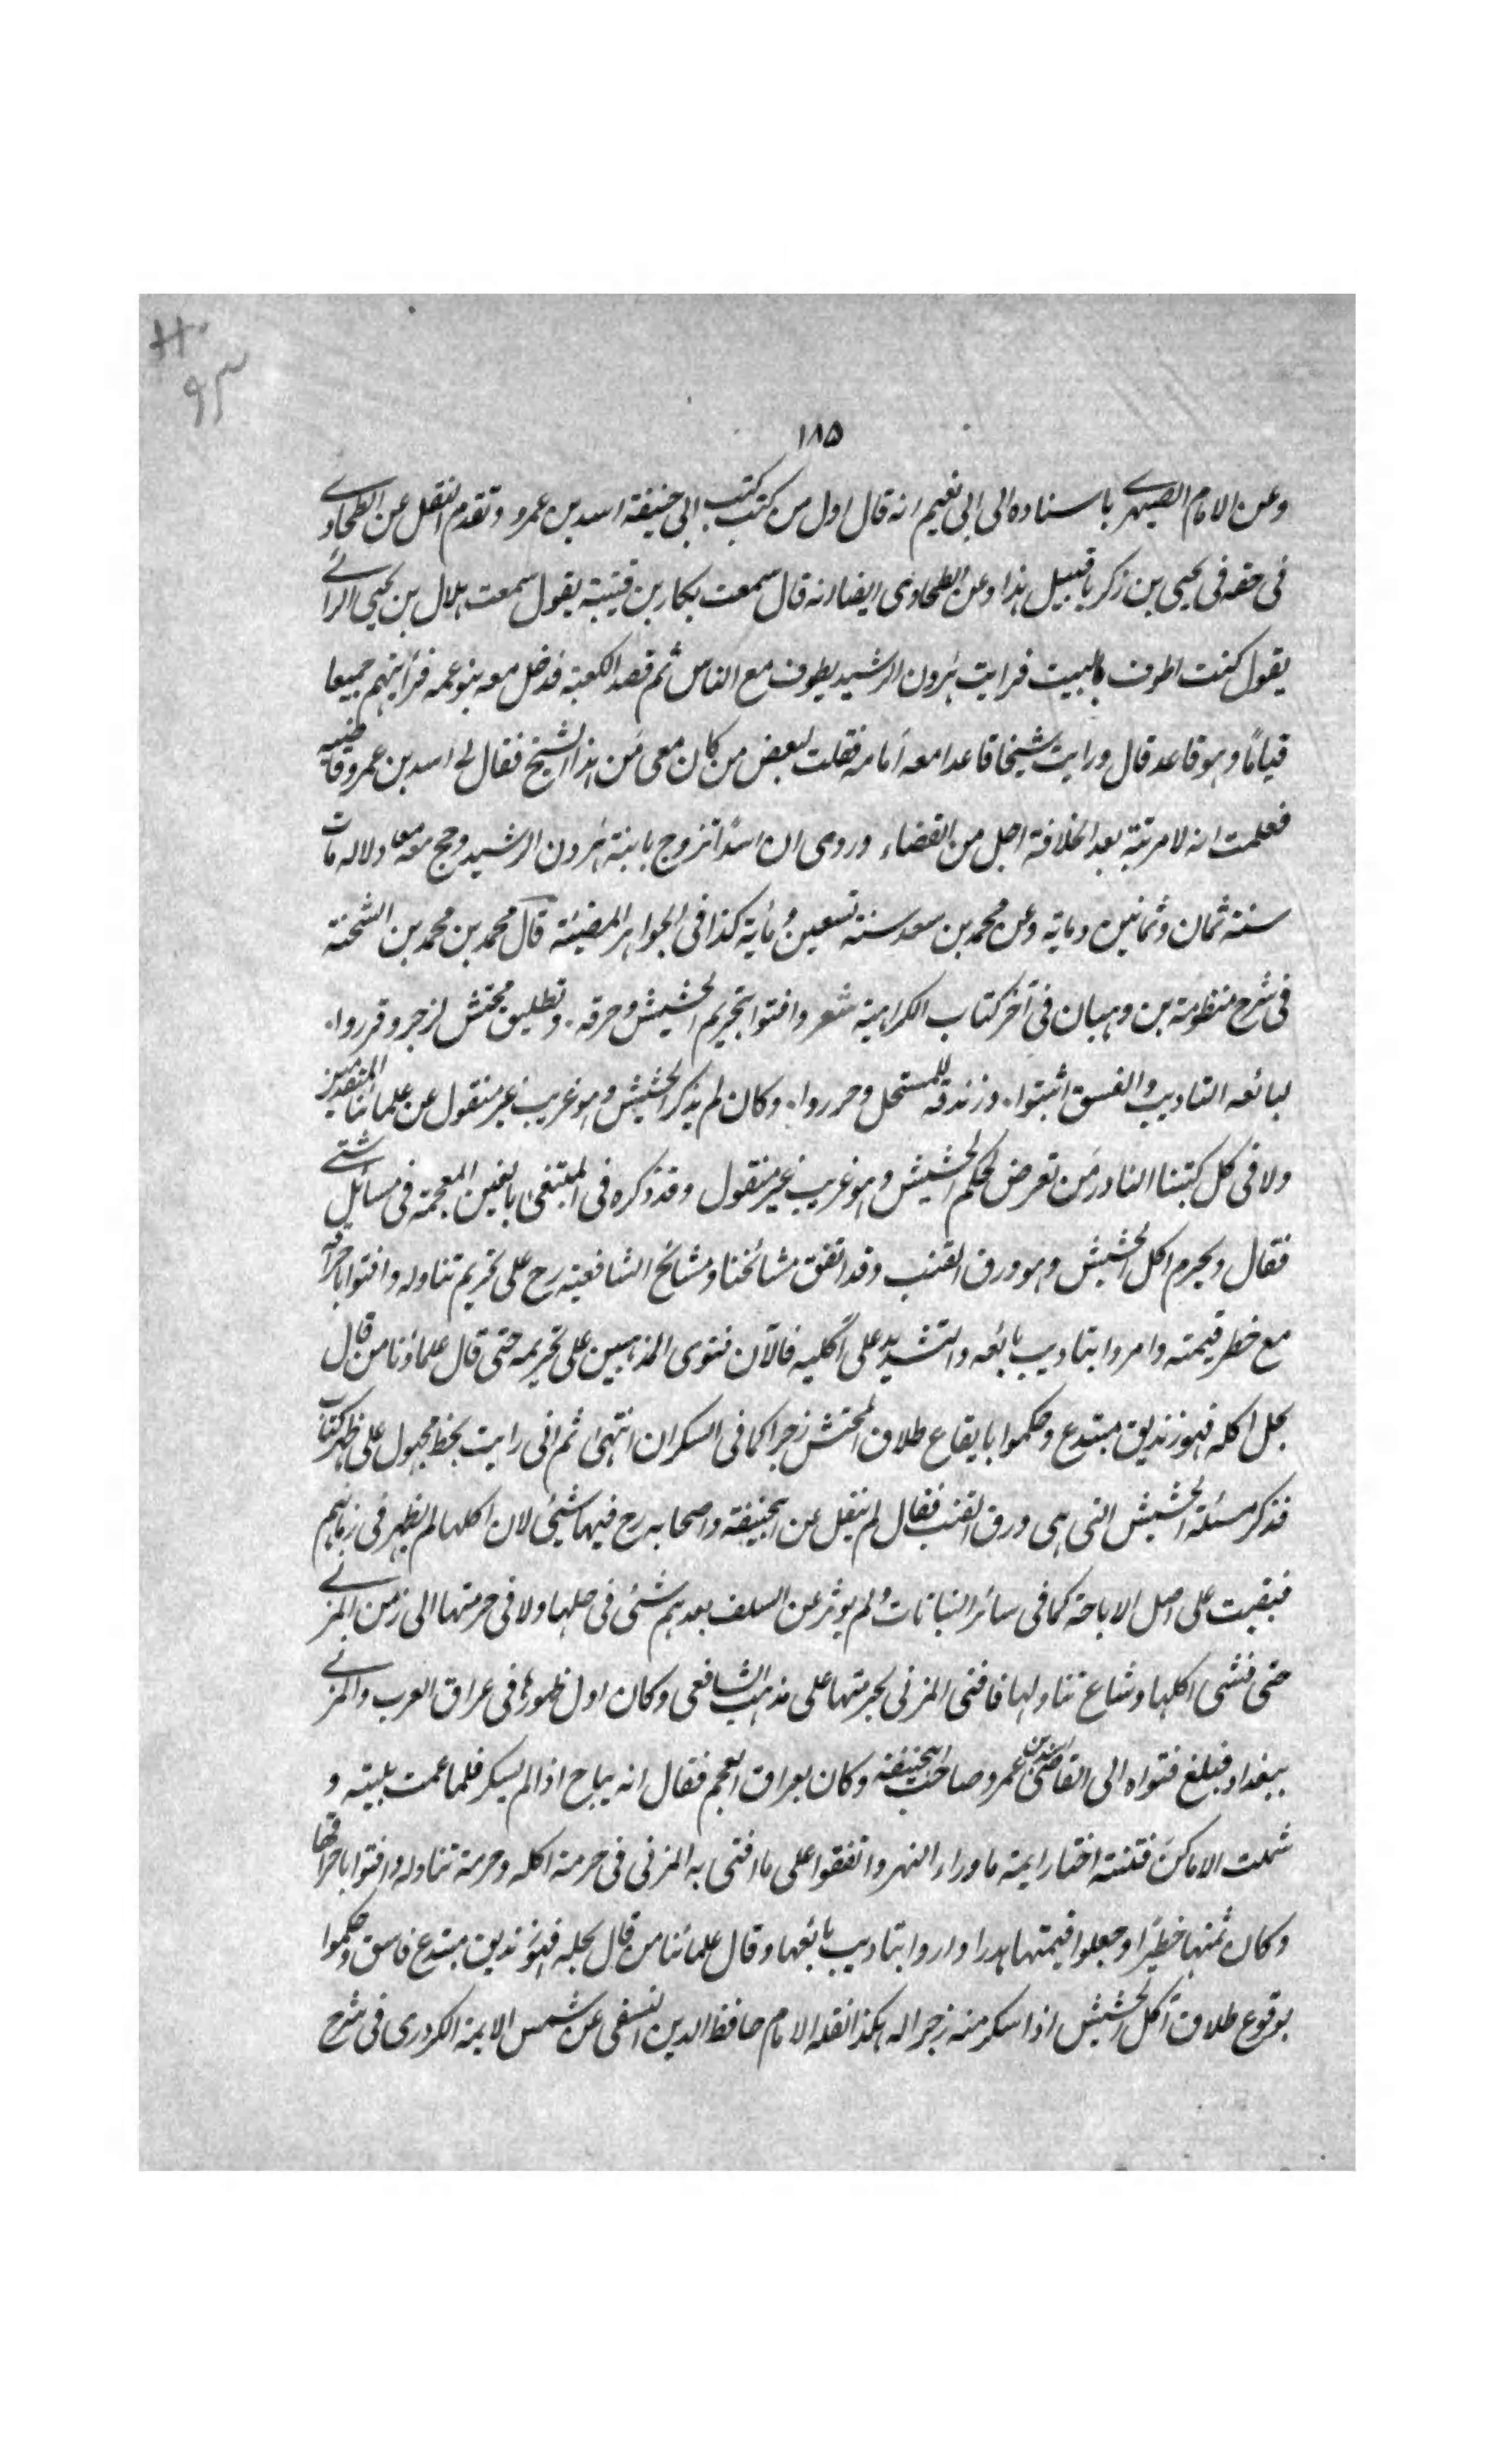 ۱۸۵
وعن الامام الصيمرى باسناده الى ابى نعيم انه قال اول من كتب كتب ابى حنيفة اسد بن عمرو وتقدم النقل عن الطحاوى
فى حقه فى يحيى بن زكريا قبيل هذا وعن الطحاوى ايضا انه قال سمعت بكار بن قتيبة يقول سمعت هلال بن يحيى الرائے
يقول كنت اطوف بالبيت فرايت هرون الرشيد يطوف مع الناس ثم قصد الكعبة فدخل معه بنو عمه فرأيتهم جميعا
قيامًا وهو قاعد قال ورايت شيخا قاعدا معه أمامه فقلت لبعض من كان معى من هذا الشيخ فقال لے اسد بن عمرو قاضيه
فعلمت انه لا مرتبة بعد الخلافة اجل من القضاء وروى ان اسدًا تزوج بابنة هرون الرشيد وحج معه معادلا له مات
سنة ثمان وثمانين ومأية وعن محمد بن سعد سنة تسعين ومأية كذا فى الجواهر المضيئة قال محمد بن محمد بن الشحنة
فى شرح منظومة بن وهبان فى آخر كتاب الكراهية شعر وافتوا بتحريم الحشيش وحرقه . وتطليق محتش لزجر وقرروا .
لبائعه التاديب والفسق اثبتوا . وزندقة للمستحل وحرروا . وكان لم يذكر الحشيش وهو غريب غير منقول عن علمائنا المتقدمين
ولا فى كل كتبنا النادر من تعرض لحكم الحشيش وهو غريب غير منقول وقد ذكره فى المبتغى بالغين المعجمة فى مسائل شتے
فقال ويحرم اكل الحشيش وهو ورق القنب وقد اتفق مشائخنا ومشائخ الشافعية رح على تحريم تناوله وافتوا باحراقه
مع خطر قيمته وامروا بتاديب بائعه والتشديد على آكليه فالآن فتوى المذهبين على تحريمه حتى قال علماؤنا من قال
بحل اكله فهو زنديق مبتدع وحكموا بايقاع طلاق المحتش زجرا كما فى السكران انتهى ثم انى رايت بخط مجهول على ظهر كتاب
فذكر مسئلة الحشيش التى هى ورق القنب فقال لم ينقل عن ابيحنيفة واصحابه رح فيها شئ لان اكلها لم يظهر فى زمانهم
فبقيت على اصل الاباحة كما فى سائر النباتات ولم يوثر عن السلف بعدهم شئ فى حلها ولا فى حرمتها الى زمن المزنے
حتى فشى اكلها وشاع تناولها فافتى المزنى بحرمتها على مذهب الشافعى وكان اول ظهورها فى عراق العرب والمزنے
ببغداد فبلغ فتواه الى القاضى اسد بن عمرو صاحب ابيحنيفة وكان بعراق العجم فقال انه يباح اذا لم يسكر فلما عمت بليته و
شملت الاماكن فتنته اختار ايمة ما وراء النهر واتفقوا على ما افتى به المزنى فى حرمة اكله وحرمة تناوله وافتوا باحراقها
وكان ثمنها خطيرًا وجعلوا قيمتها هدرا وامروا بتاديب بائعها وقال علمائنا من قال بحله فهو زنديق مبتدع فاسق وحكموا
بوقوع طلاق آكل الحشيش اذا سكر منه زجرا له هكذا نقله الامام حافظ الدين النسفى عن شمس الايمة الكردرى فى شرح